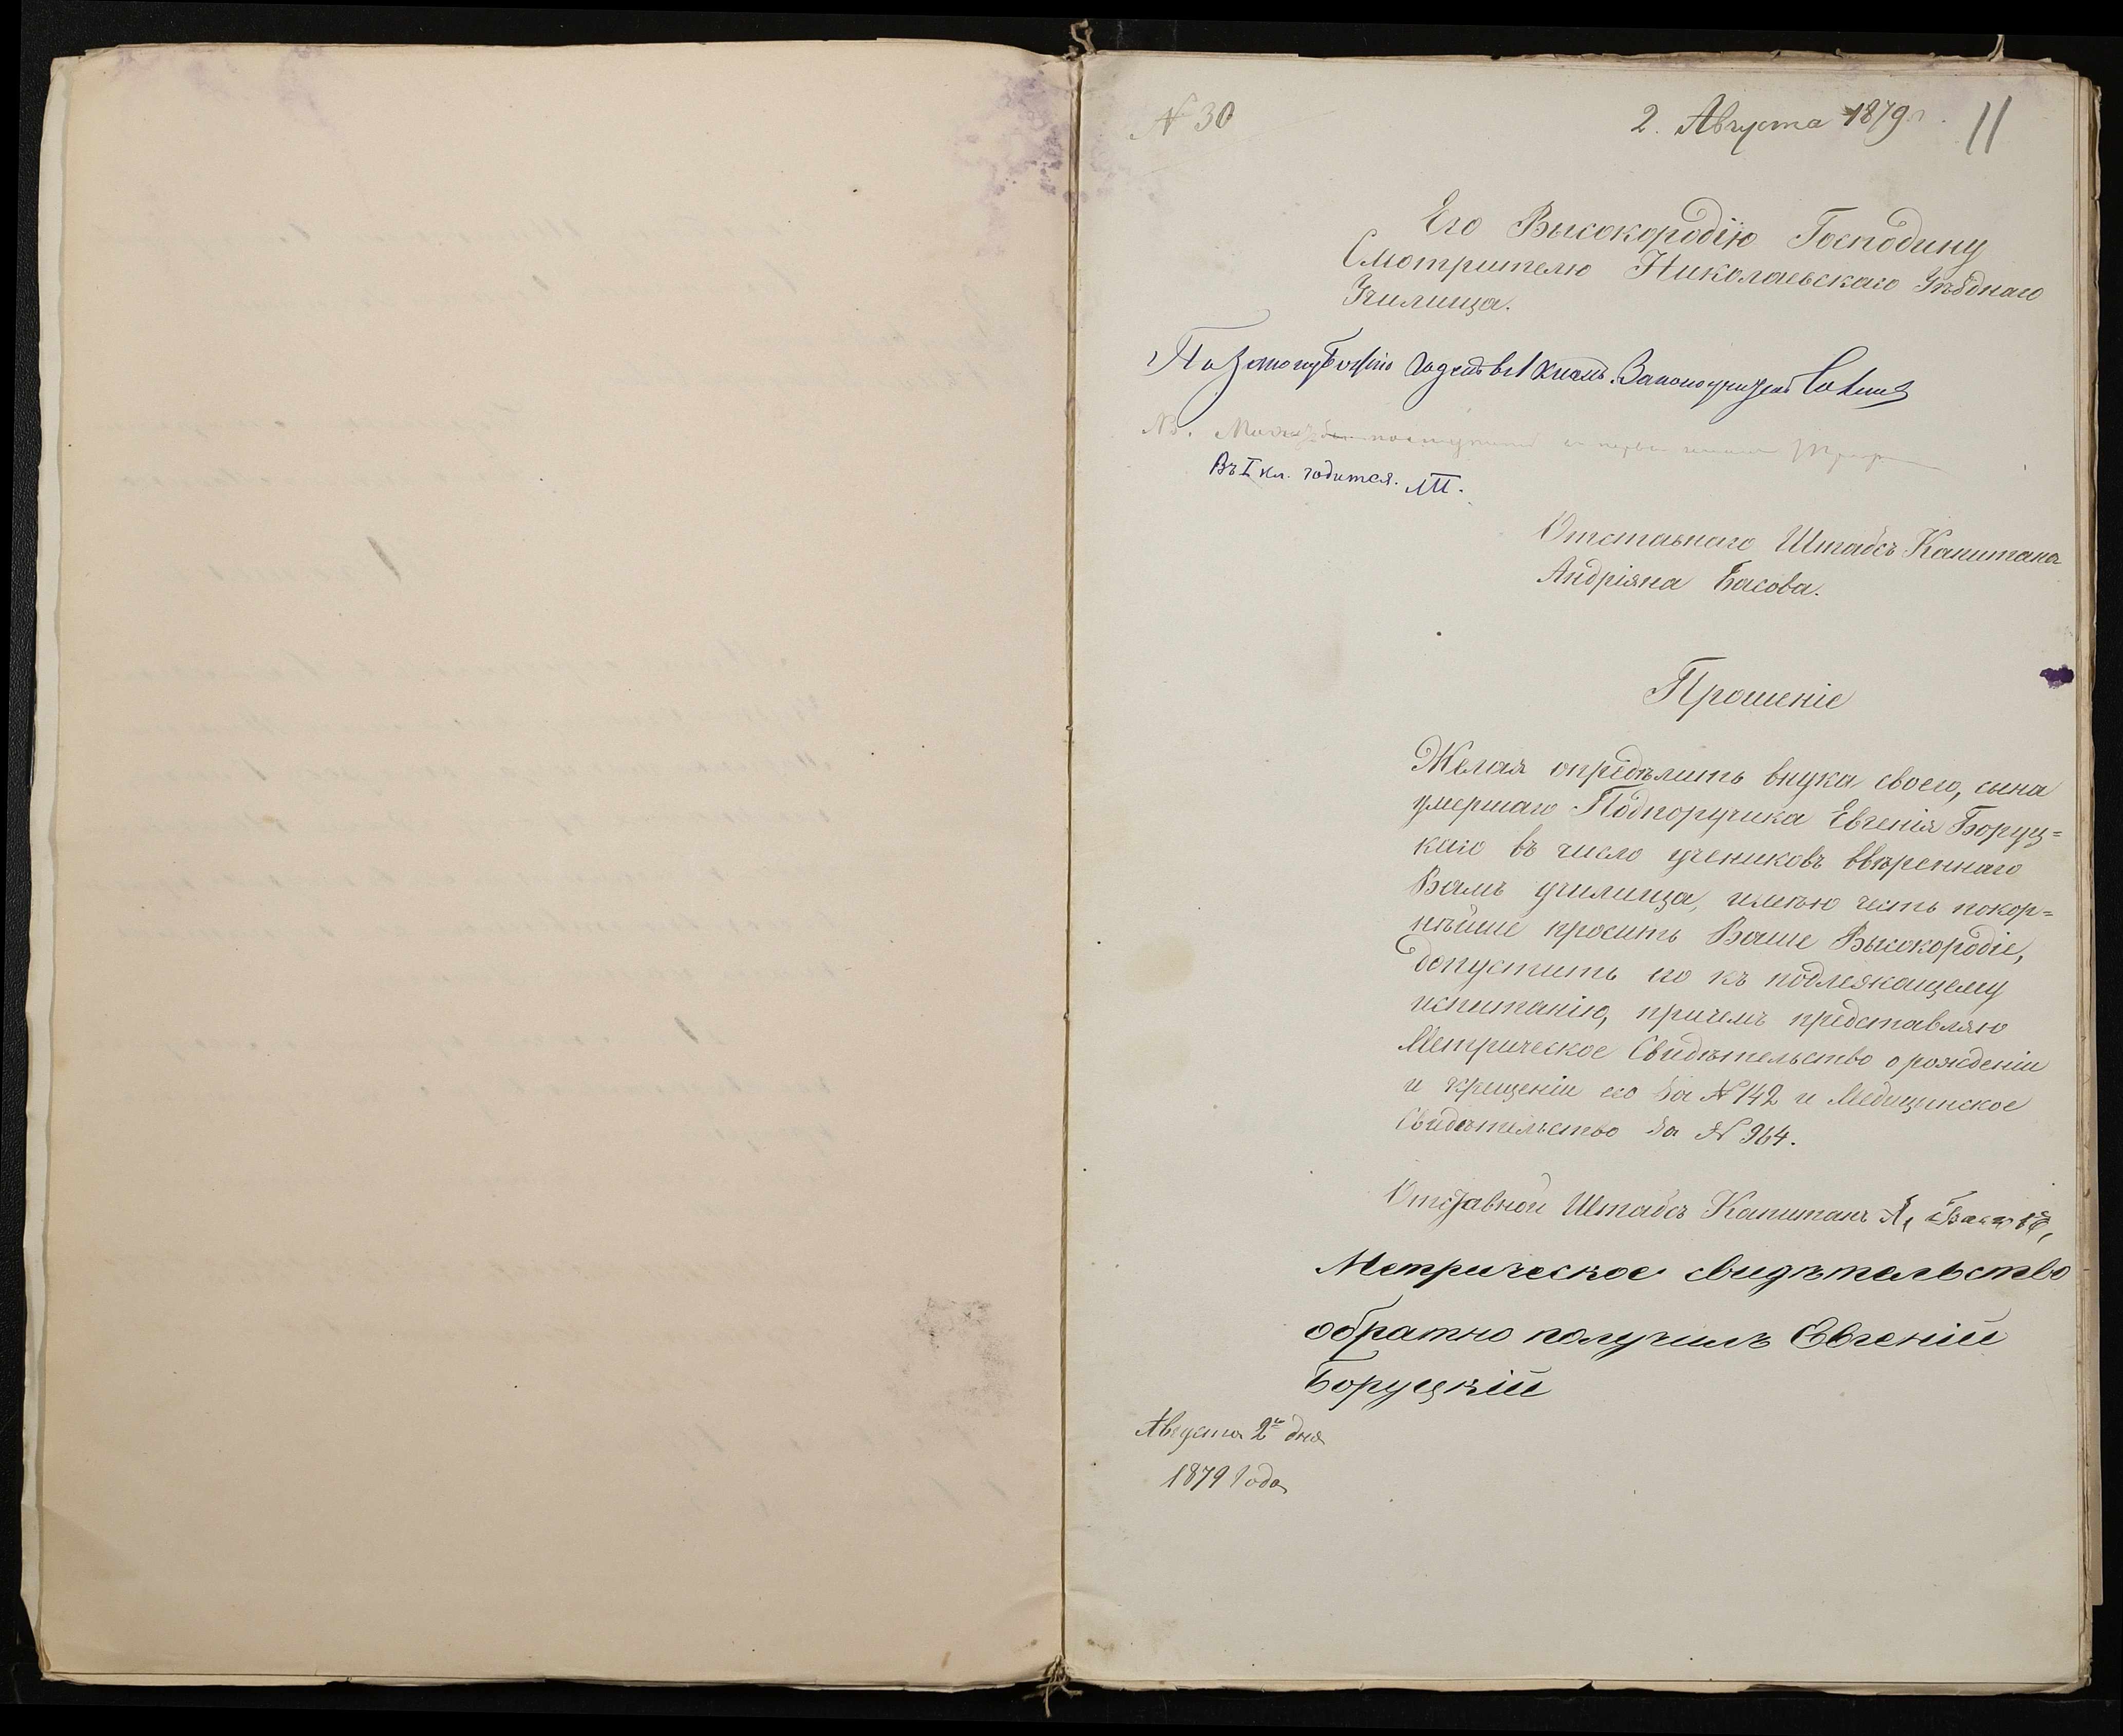 № 30
2. Августа 1879 г.
11
Его Высокородію Господину
Смотрителю Николаевскаго Уѣзднаго
Училища.
По Закону Божію годенъ в 1 классъ. Законоучитель
NB.
Въ I кл. годится. МП.
Отставнаго Штабсъ Капитана
Андріяна Басова.
Прошеніе
Желая опредѣлить внука своего, сына
умершаго Подпоручика Евгенія Боруц=
каго въ число учениковъ ввѣреннаго
Вамъ училища, имѣю честь покор=
нѣйше просить Ваше Высокородіе,
допустить его къ подлежащему
испытанію, причемъ представляю
Метрическое Свидѣтельство о рожденіи
и крещеніи его за № 142 и Медицинское
Свидѣтельство за № 964.
Отставной Штабсъ Капитанъ А, Басовъ,
Метрическое свидѣтельство
обратно получилъ Евгеній
Боруцкій
Августа 2го дня
1879 Года